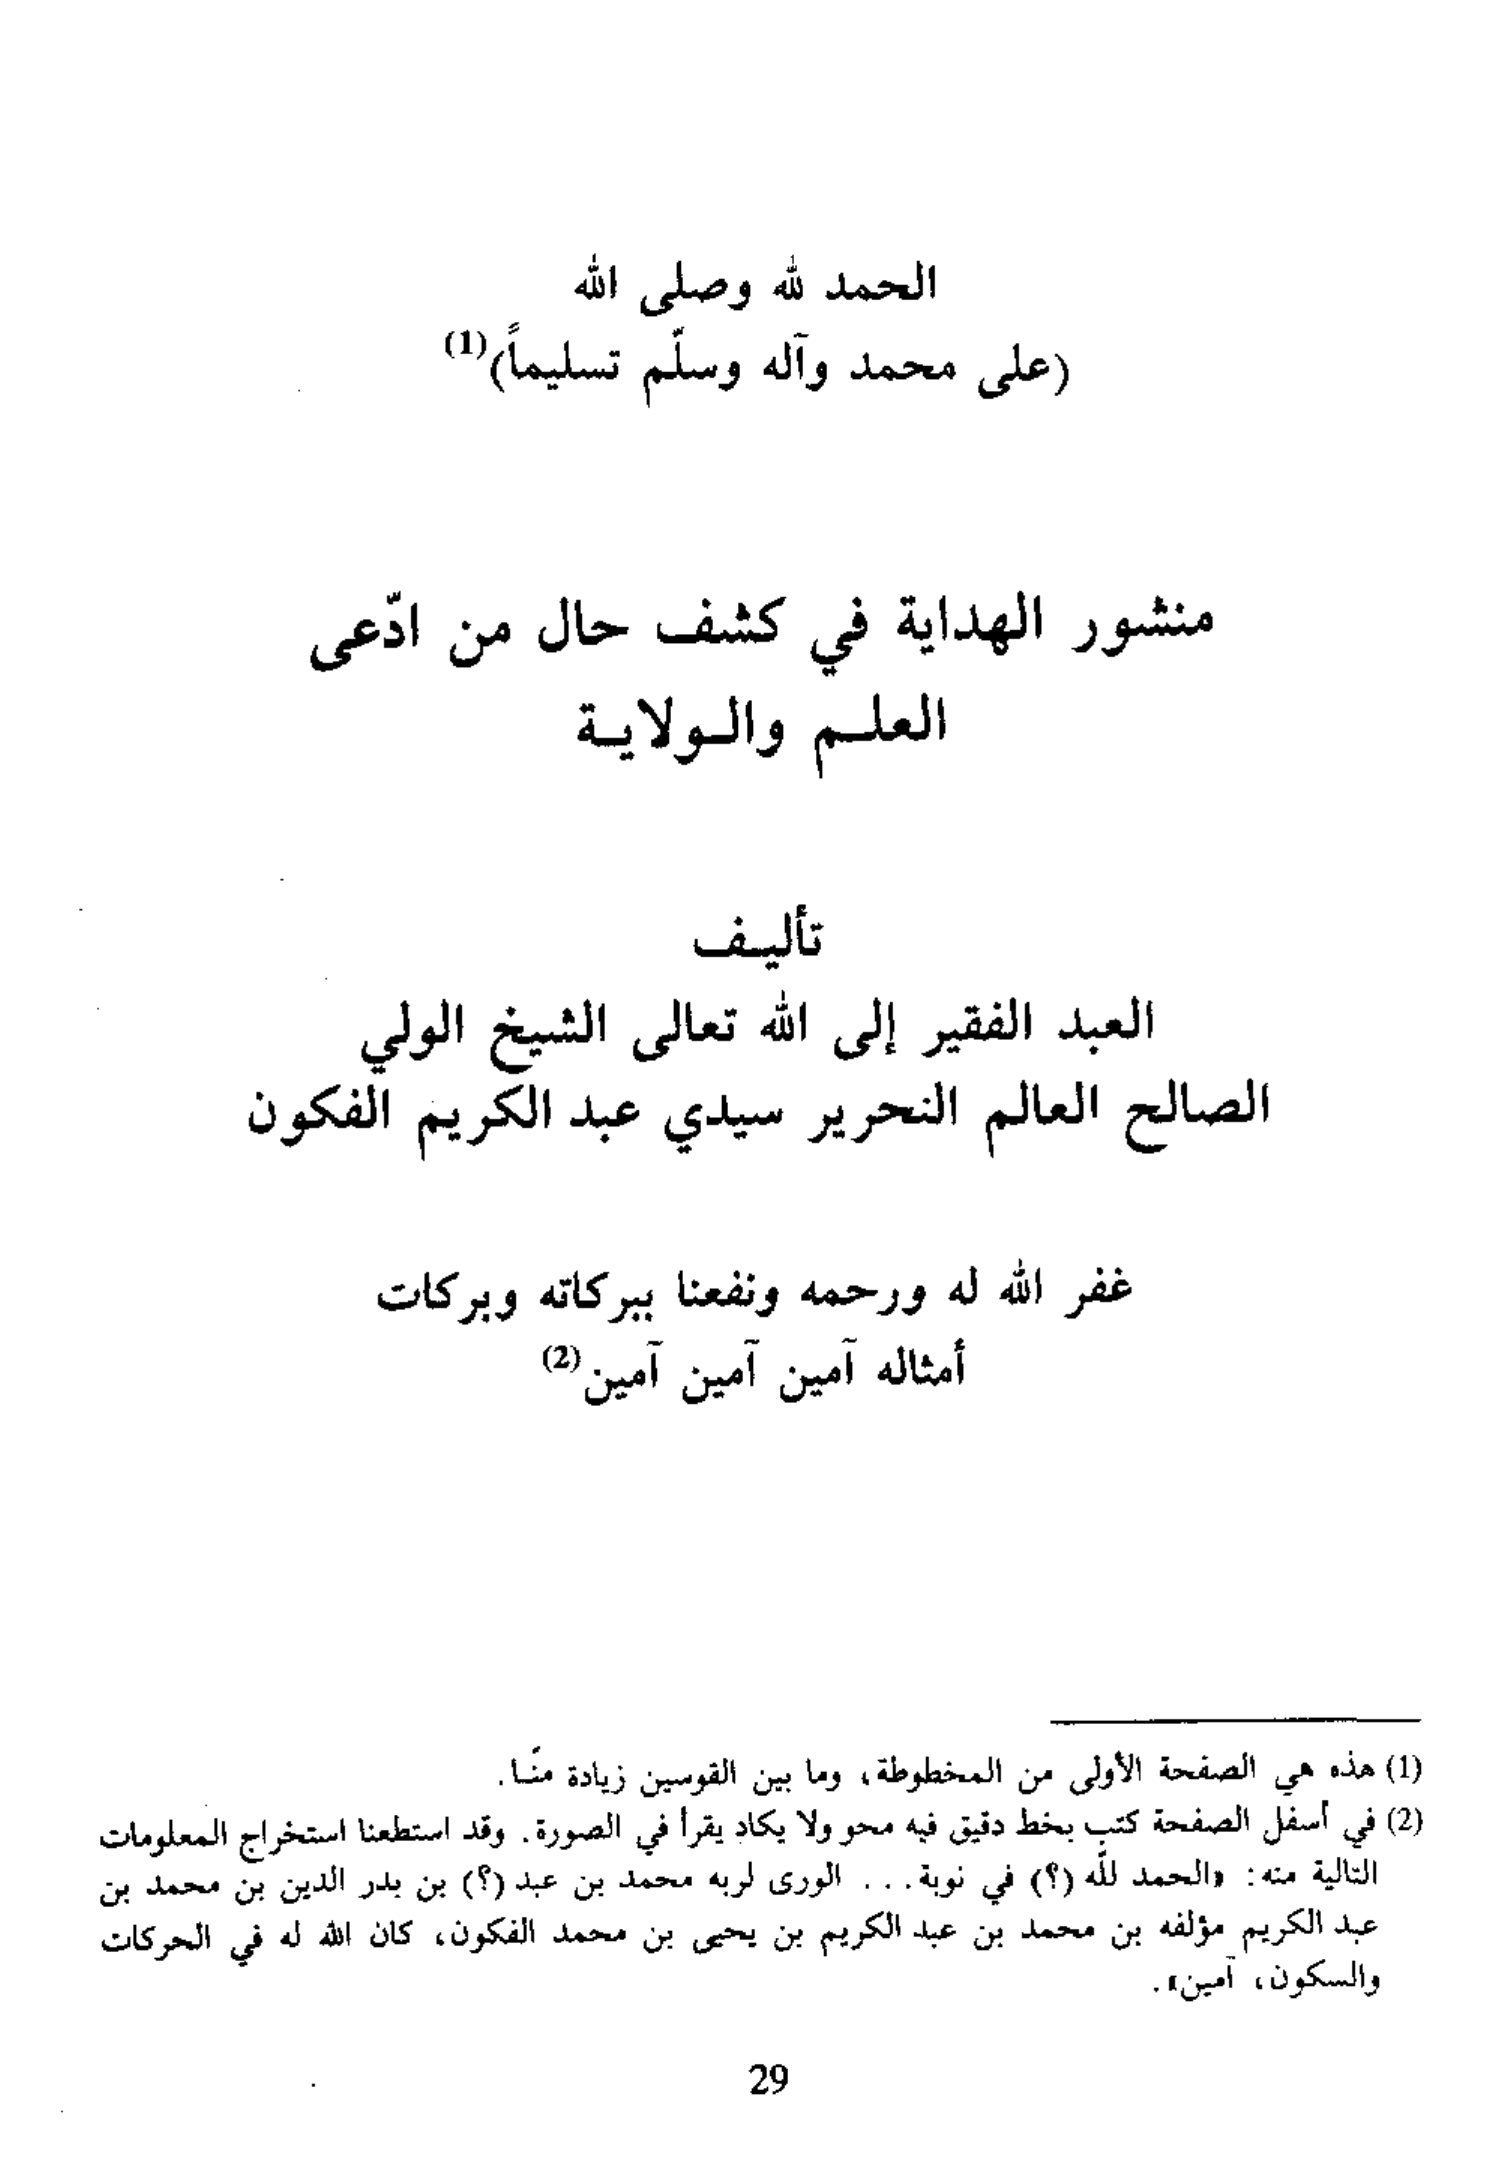 الحمد لله وصلى الله
(على محمد وآله وسلّم تسليماً)(1)
منشور الهداية في كشف حال من ادّعى
العلـم والـولايـة
تأليـف
العبد الفقير إلى الله تعالى الشيخ الولي
الصالح العالم النحرير سيدي عبد الكريم الفكون
غفر الله له ورحمه ونفعنا ببركاته وبركات
أمثاله آمين آمين آمين(2)
(1) هذه هي الصفحة الأولى من المخطوطة، وما بين القوسين زيادة منّـا.
(2) في أسفل الصفحة كتب بخط دقيق فيه محو ولا يكاد يقرأ في الصورة. وقد استطعنا استخراج المعلومات
التالية منه: «الحمد للّه (؟) في نوبة... الورى لربه محمد بن عبد (؟) بن بدر الدين بن محمد بن
عبد الكريم مؤلفه بن محمد بن عبد الكريم بن يحيى بن محمد الفكون، كان الله له في الحركات
والسكون، آمين».
29